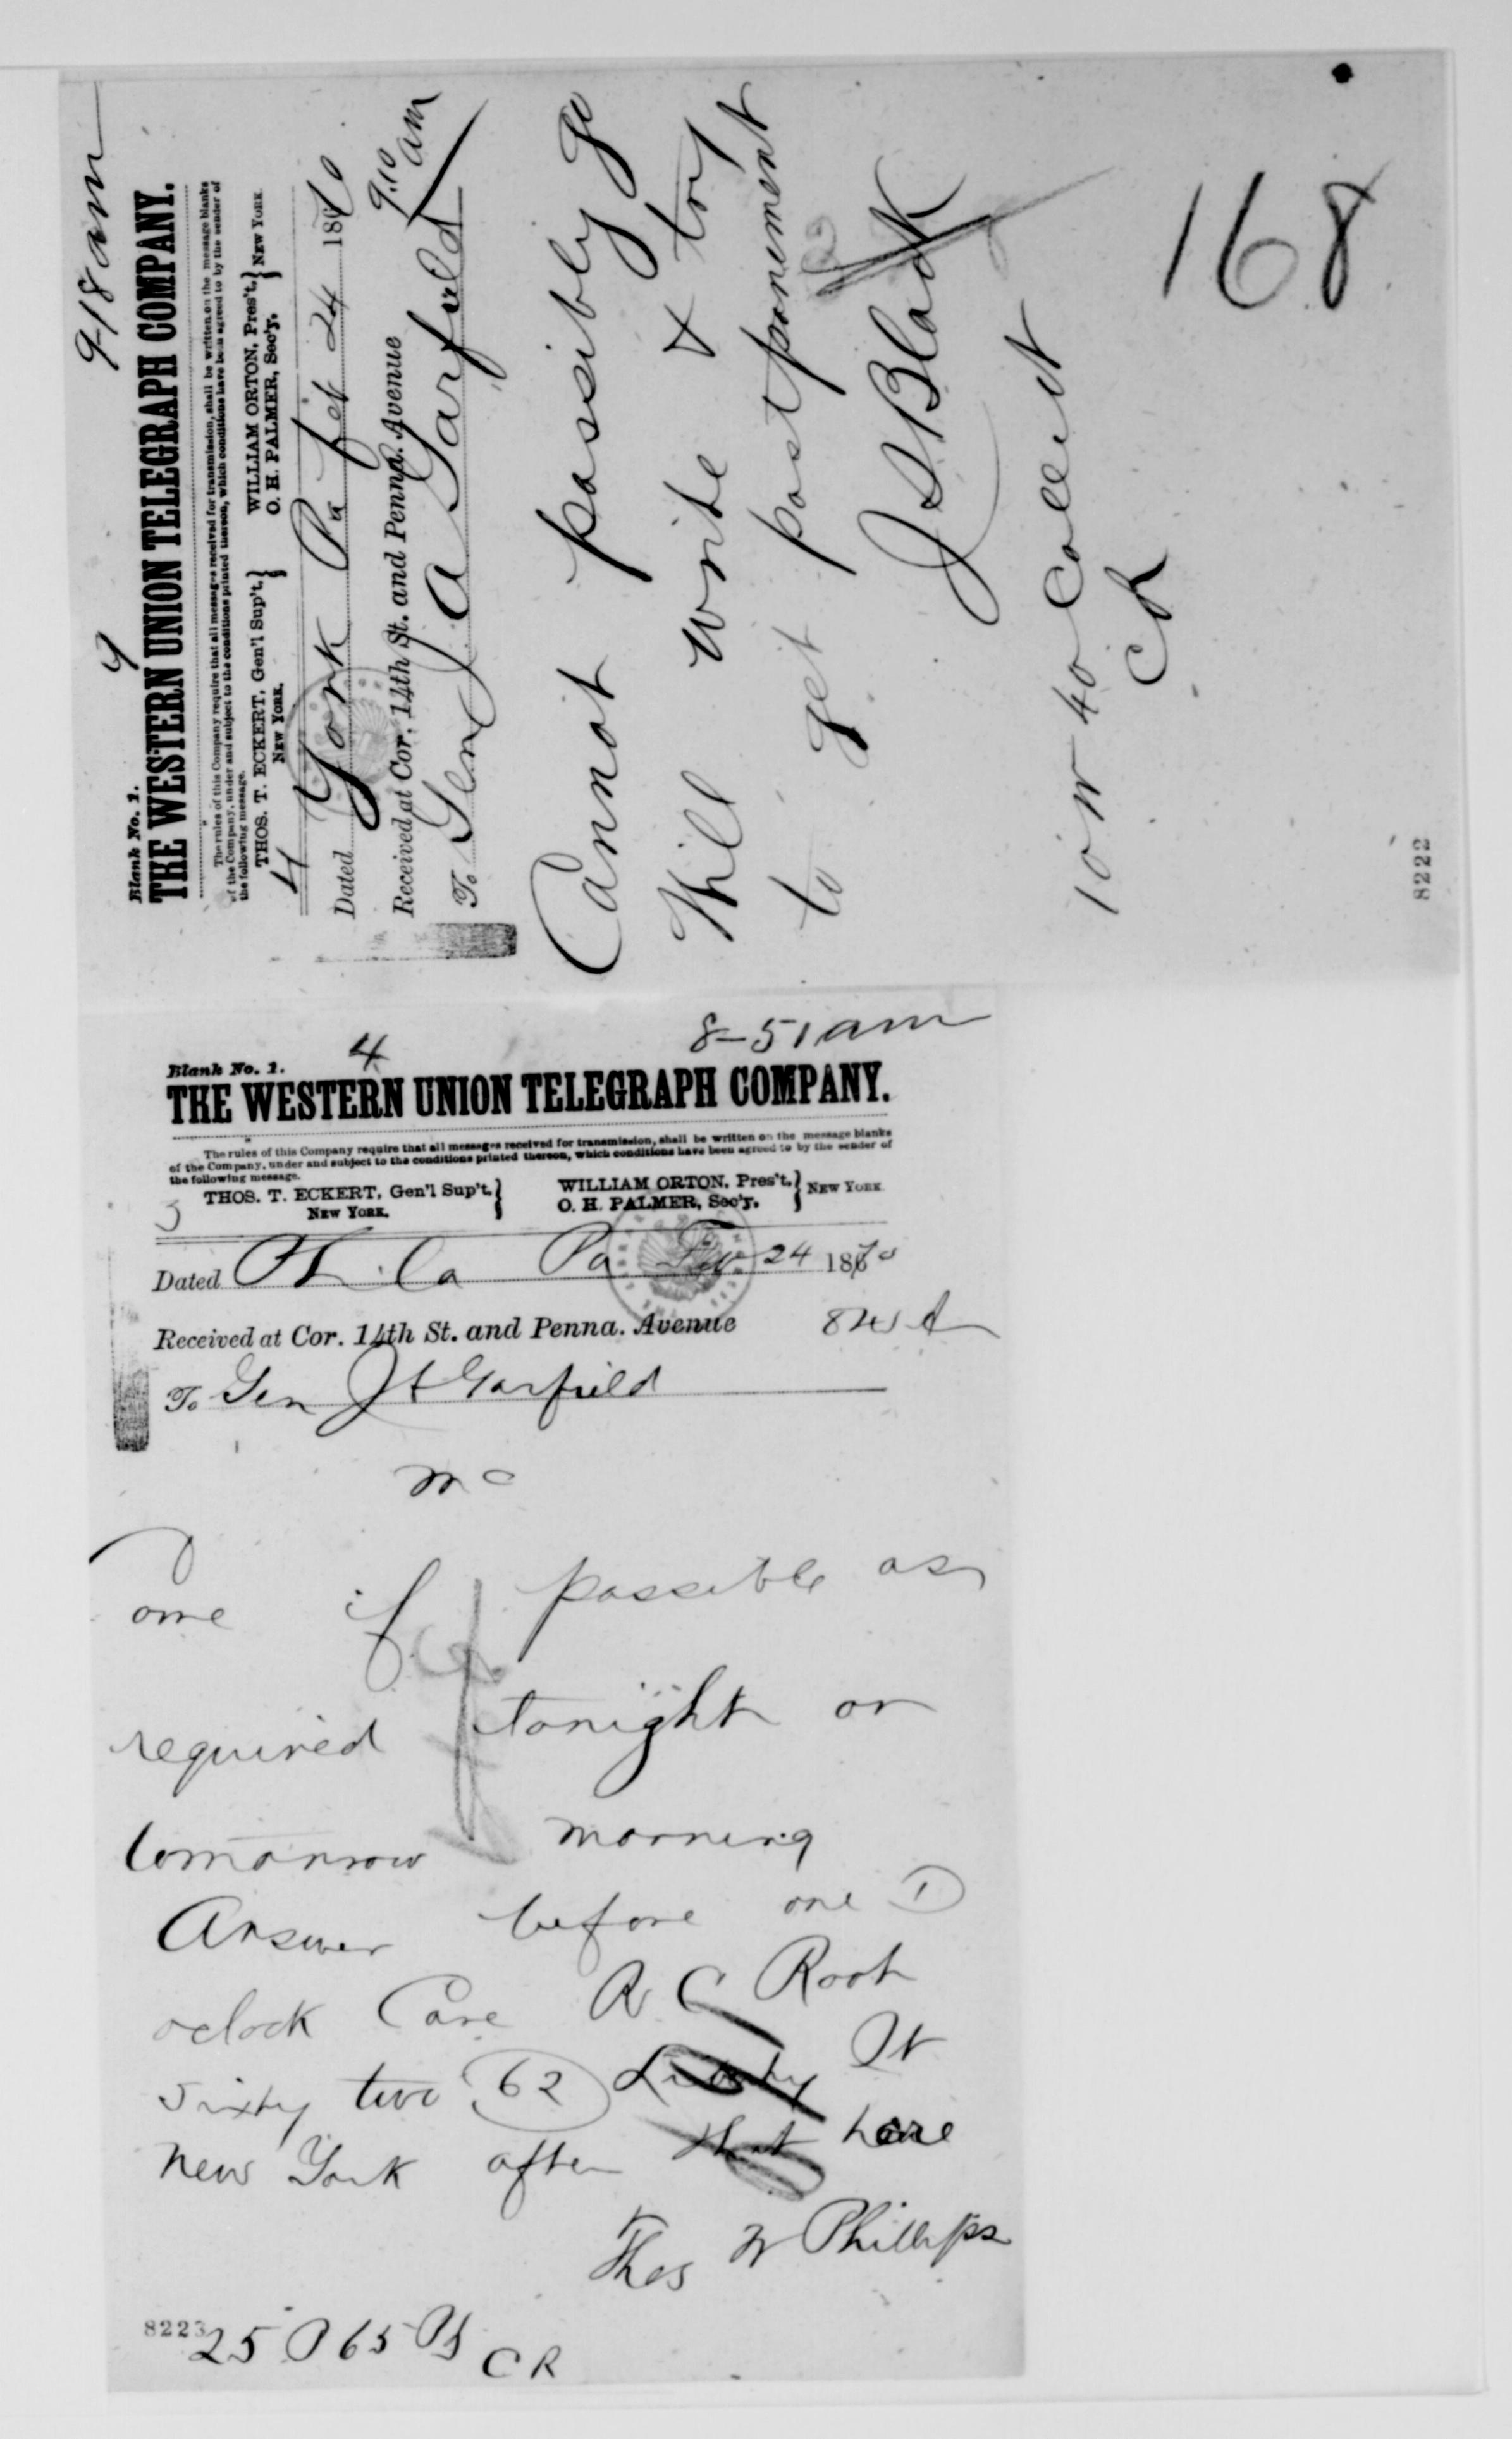 4 9-18 am
Blank No. 1.
THE WESTERN UNION TELEGRAPH COMPANY.
The rules of this Company require that all messages received for transmission, shall be written on the message blanks
of the Company, under and subject to the conditions printed thereon, which conditions have been agreed to by the sender of
the following message.
THOS. T. ECKERT, Gen'l Sup't, WILLIAM ORTON, Pres't,
NEW YORK. O. H. PALMER, Sec'y, NEW YORK
4
Dated York Pa Feb 24 1870
Received at Cor. 14th St. and Penna. Avenue 9.10 am
To Gen J A Garfield
Cannot possibly go
Will write & try
to get postponement
J S Black
10 W 40 Collect
CR
168
8222
4 8-51 am
Blank No. 1.
THE WESTERN UNION TELEGRAPH COMPANY.
The rules of this Company require that all messages received for transmission, shall be written on the message blanks
of the Company, under and subject to the conditions printed thereon, which conditions have been agreed to by the sender of
the following message.
THOS. T. ECKERT, Gen'l Sup't, WILLIAM ORTON, Pres't,
NEW YORK. O. H. PALMER, Sec'y, NEW YORK
3
Dated Phila Pa Feb 24 1870
Received at Cor. 14th St. and Penna. Avenue
To Gen J A Garfield
MC
Come if possible as
required tonight or
tomorrow morning
Answer before one 1
oclock Care R C Root
sixty two 62 Liberty St
New York after that here
Thos W Phillips
8223
25 P 65 Pd CR